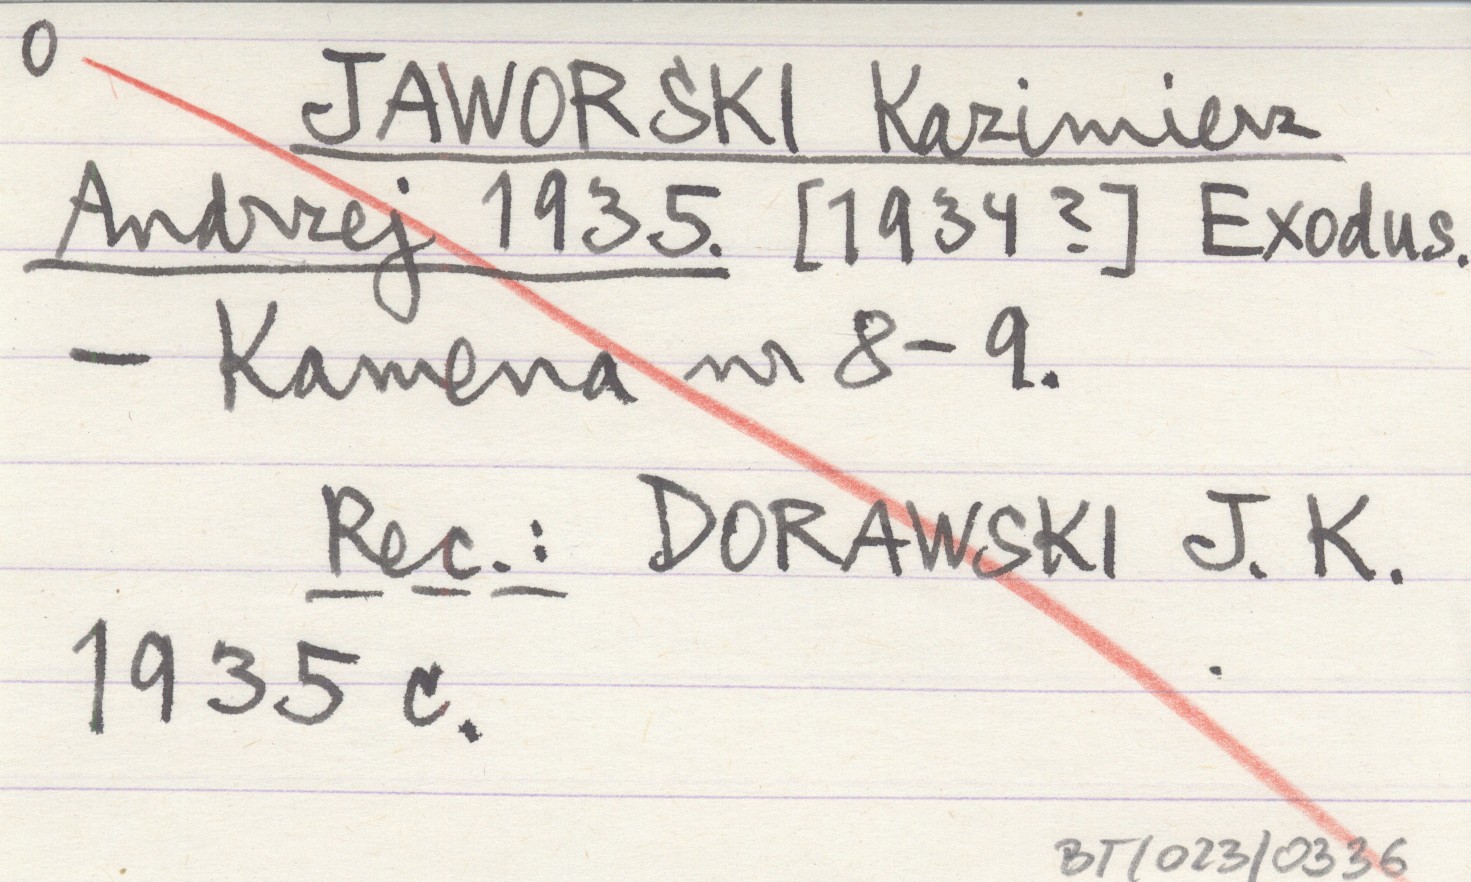 0
JAWORSKI Kazimierz
Andrzej 1935. [1934?] Exodus.
— Kamena nr 8-9.
Rec.: DORAWSKI J. K.
1935 c.
BT/023/0336